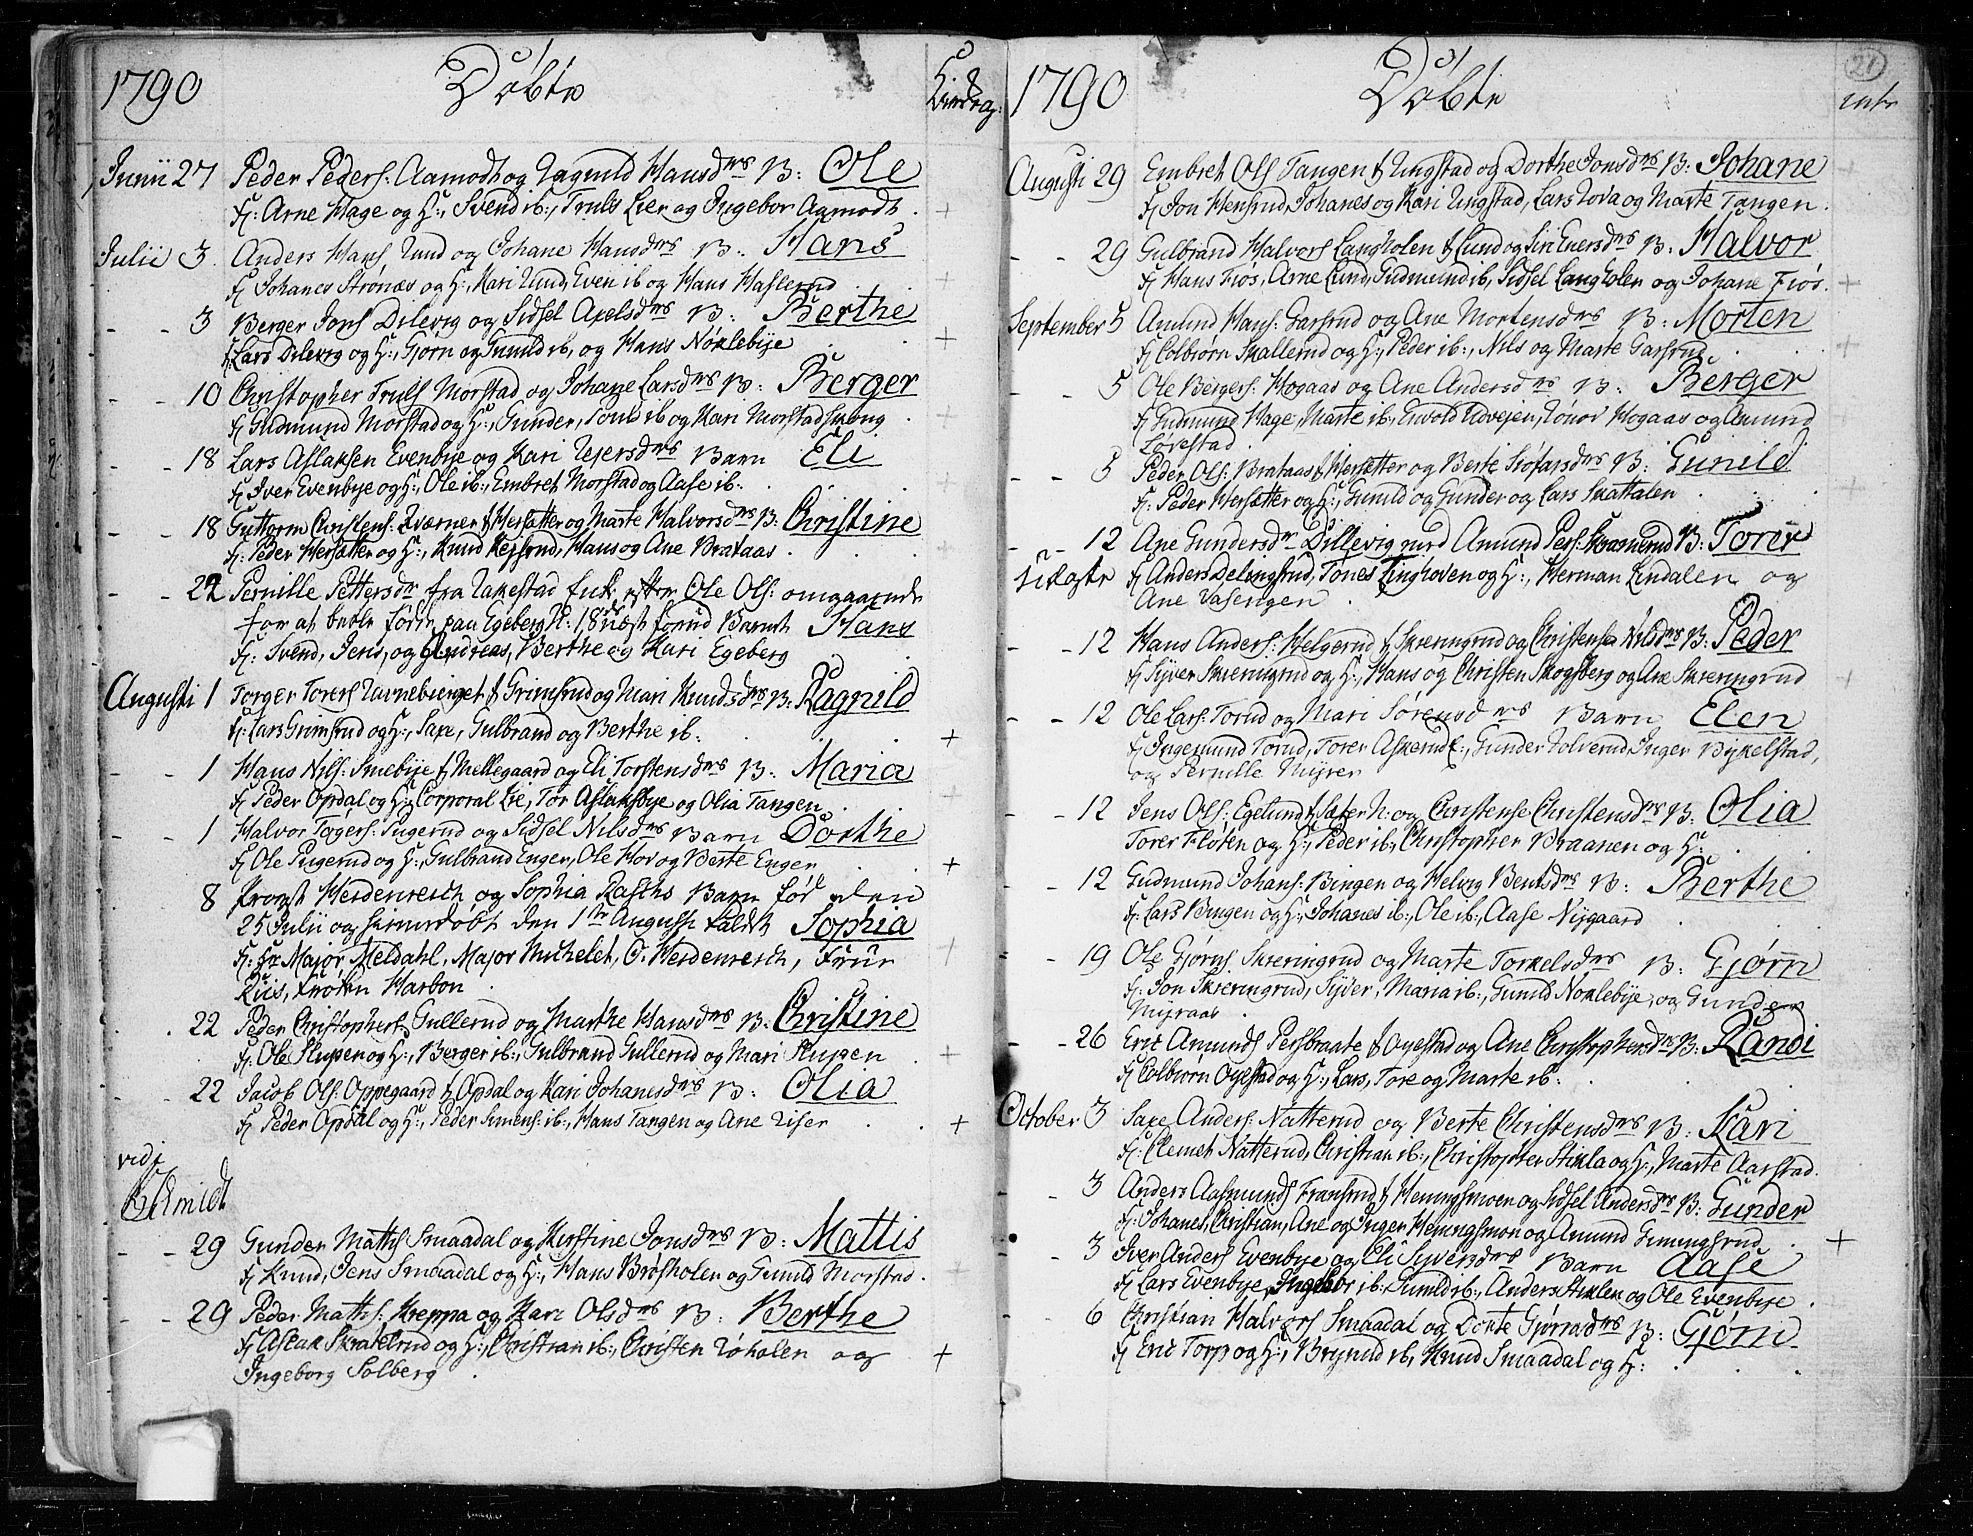 1790 Döbte
Junii 27 Peder Peders: Aamodt og Ragnild Hansdrs B: Ole
fj: Arne Hage og H:, Svend ib:, Truls Lier og Ingebor Aamodt.
Julii 3. Anders Hans Lund og Johane Hansdrs B: Hans
fj Johanes Strönæs og H:, Kari Lund, Even ib og Hans Haslerud
- - 3 Berger Jons Dilevig og Sidsel Axelsdrs B: Berthe
fj Lars Dilevig og H:, Gjörn og Gunild ib, og Hans Nöklebije
- - 10 Christopher Truls Morstad og Johane Larsdrs B: Berger
fj Gudmund Morstad og H:, Gunder, ib og Kari Morstad
- - 18 Lars Aslaksen Evenbye og Kari Rejersdrs Barn Eli
fj Iver Evenbye og H:, Ole ib:, Embret Morstad og Aase ib:
- - 18 Guttorm Christens: Kværner f Hersætter og Marte Halvorsdrs B: Christine
fj: Peder Hersætter og H:, Knud Kejserud, Hans og Ane Brataas.
- - 22 Pernille Pettersdr fra Rakestad efter Ole Ols: omgaaende
for at betle födte paa Egeberg forud Barnet Hans
fj: Svend, Jens, og Andreas, Berthe og Kari Egeberg
Augusti 1 Torger Torers Ravnebierget f Grimsrud og Mari Knudsdrs B: Ragnild
fj: Lars Grimsrud og H:, Saxe, Gulbrand og Berthe ib.
- - 1 Hans Nils: Smebije f Mellegaard og Eli Torstensdrs B: Maria
fj Peder Opdal og H:, Corporal Lie, Tor Aslaksbye og Olia Tangen
- - 1 Halvor Tagers: Pugerud og Sidsel Nilsdrs Barn Dorthe
fj Ole Pugerud og H:, Gulbrand Enger, Ole Hov og Berte Enger
8 Provst Heidenreich og Sophia Rasths Barn föd den
25 Julii og hiemedöbt den 1ste Augusti kaldet Sophia
fj: Hr Major Meldahl, Major Michelet, O: Heidenreich, Frue
Riis, Fröken Harbou
22 Peder Christophers Gullerud og Marthe Hansdrs B: Christine
fj: Ole Slupen og H:, Berger ib:, Gulbrand Gullerud og Mari Slupen
- - 22 Jacob Ols: Oppegaard f Opdal og Kari Johanesdrs B: Olia
fj Peder Opdal og H:, Peder Simens: ib:, Hans Tangen og Ane Riser
vidi
Schmidt
- - 29 Gunder Maths Smaadal og Kirstine Jonsdrs B: Mattis
fj Knud, Jens Smaadal og H:, Hans Brösholen og Gunild Morstad.
- - 29 Peder Maths: Kreppa og Kari Olsdrs B: Berthe
fj Aslak Skrakelrud og H:, Christian ib:, Christen Röholen og
Ingeborg Solberg
1790 Döbte 21
intr
Augusti 29 Embret Ols Tangen f Ringstad og Dorthe Jonsdrs B: Johane
fj Jon Hensrud, Johanes og Kari Ringstad, Lars Rova og Marte Tangen.
- - 29 Gulbrand Halvors Langholen f Lund og Siri Enersdrs B: Halvor
fj Hans Fiös, Arne Lund, Gudmund ib, Sidsel Langholen og Johane Fiös.
September 5 Amund Hans: Garsrud og Ane Mortensdrs B: Morten
fj Colbiörn Skallerud og H:, Peder ib:, Nils og Marte Garsrud
- - 5 Ole Bergers: Hogaas og Ane Andersdrs B: Berger
fj Gudmund Hage, Marte ib:, Engvold Udvejen, Rönov Hogaas og Amund
Lövestad
- - 5 Peder Ols: Brataas f Hersætter og Berte Siöfarsdrs B: Gunild
fj: Peder Hersætter og H:, Gunild og Gunder og Lars Skattalen
- - 12 Ane Gundersdr Dillevig med Amund Pers: B: Torer
Uægte fj Anders Delingsrud, Tönes Linghoven og H:, Herman Lindalen og
Ane Vasengen
- - 12 Hans Anders: Helgerud f Skreringrud og Christense Nilsdrs B: Peder
fj Syver Skreringrud og H:, Hans og Christen Skogsberg og Ane Skreringrud
- - 12 Ole Lars: Torud og Mari Sörensdrs Barn Elen
fj Ingemund Torud, Torer Askerud, Gunder Solverud, Inger Bykelstad,
og Pernille Myrer
- - 12 Jens Ols: Egelund f Sæter N: og Christense Christensdrs B: Olia
Torer Flöten og H:, Peder ib:, Christopher Braanen og H:
- - 12 Gudmund Johans: Bingen og Helvig Bentsdrs B: Berthe
fj: Lars Bingen og H:, Johanes ib:, Ole ib:, Aase Nygaard
- - 19 Ole Gjörns: Skreringrud og Marte Torkelsdrs B: Gjörn
fj: Jon Skreringrud, Syver, Maria ib:, Gunild Noklebije, og Gunder
Myraas
- - 26 Eric Amunds Persbraate f Oyestad og Ane Christophersdrs B: Randi
fj Colbiörn Oyestad og H:, Lars, Tore og Marte ib:
October 3 Saxe Anders: Natterud og Berte Christensdrs B: Kari
fj: Clemet Natterud, Christian ib:, Christopher Stikla og H:, Marte Aarstad.
- 3 Anders Aasmunds Fransrud f Heningsmoen og Sidsel Andersdrs B: Gunder
fj: Johanes, Christian, Ane og Inger Heningsmon og Amund Gimingsrud
- - 3 Iver Anders Evenbye og Eli Syversdrs Barn Aase
fj Lars Evenbye, Ingebor ib:, Gunild ib:, Anders Stiklen og Ole Evenbye.
- - 6 Christian Halvors Smaadal og Dorte Gjörnsdrs B: Gjörn
fj Eric Torp og H:, Brynild ib, Knud Smaadal og H: